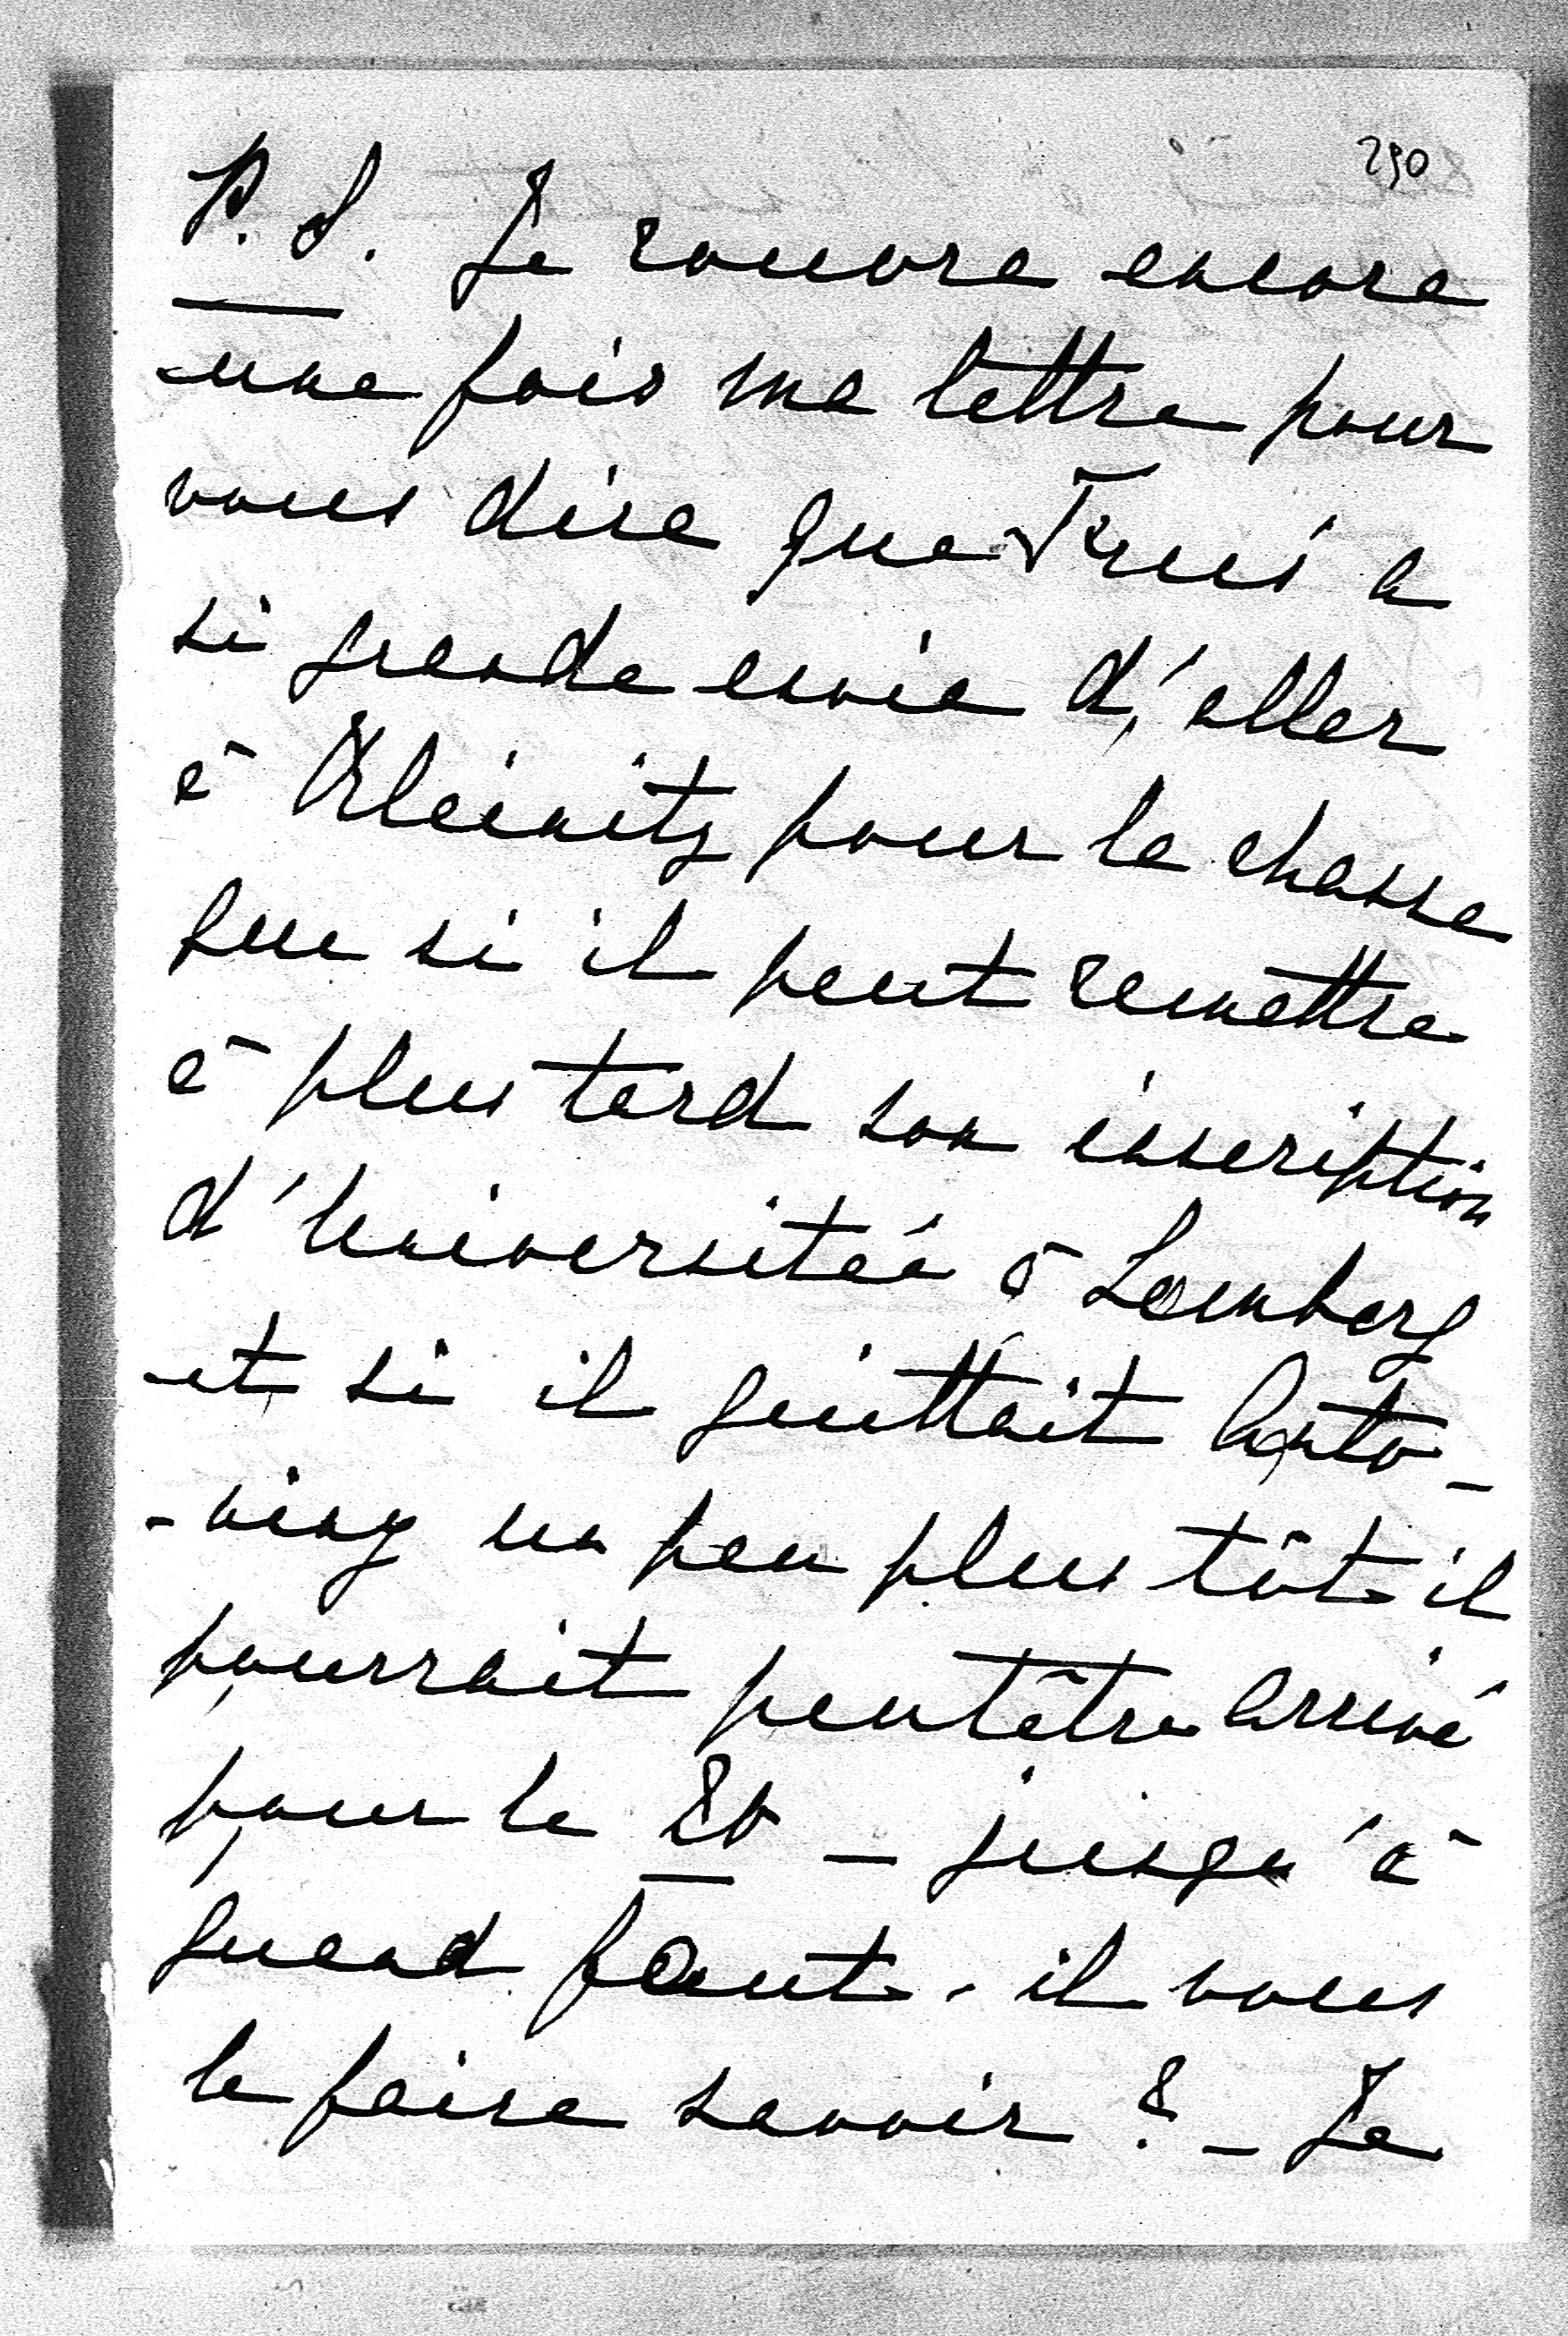 290
P. S. Je rouvre encore
une fois ma lettre pour
vous dire que Fruś a
si grande envie d'aller
à Kleinitz pour la chasse
que si il peut remettre
à plus tard son inscription
d'Universitée à Lemberg
et si il quittait Anto-
-niny un peu plus tôt il
pourrait peutêtre arrivé
pour le 20 _ jusqu'à
quand faut-il vous
le faire savoir ? _ Je